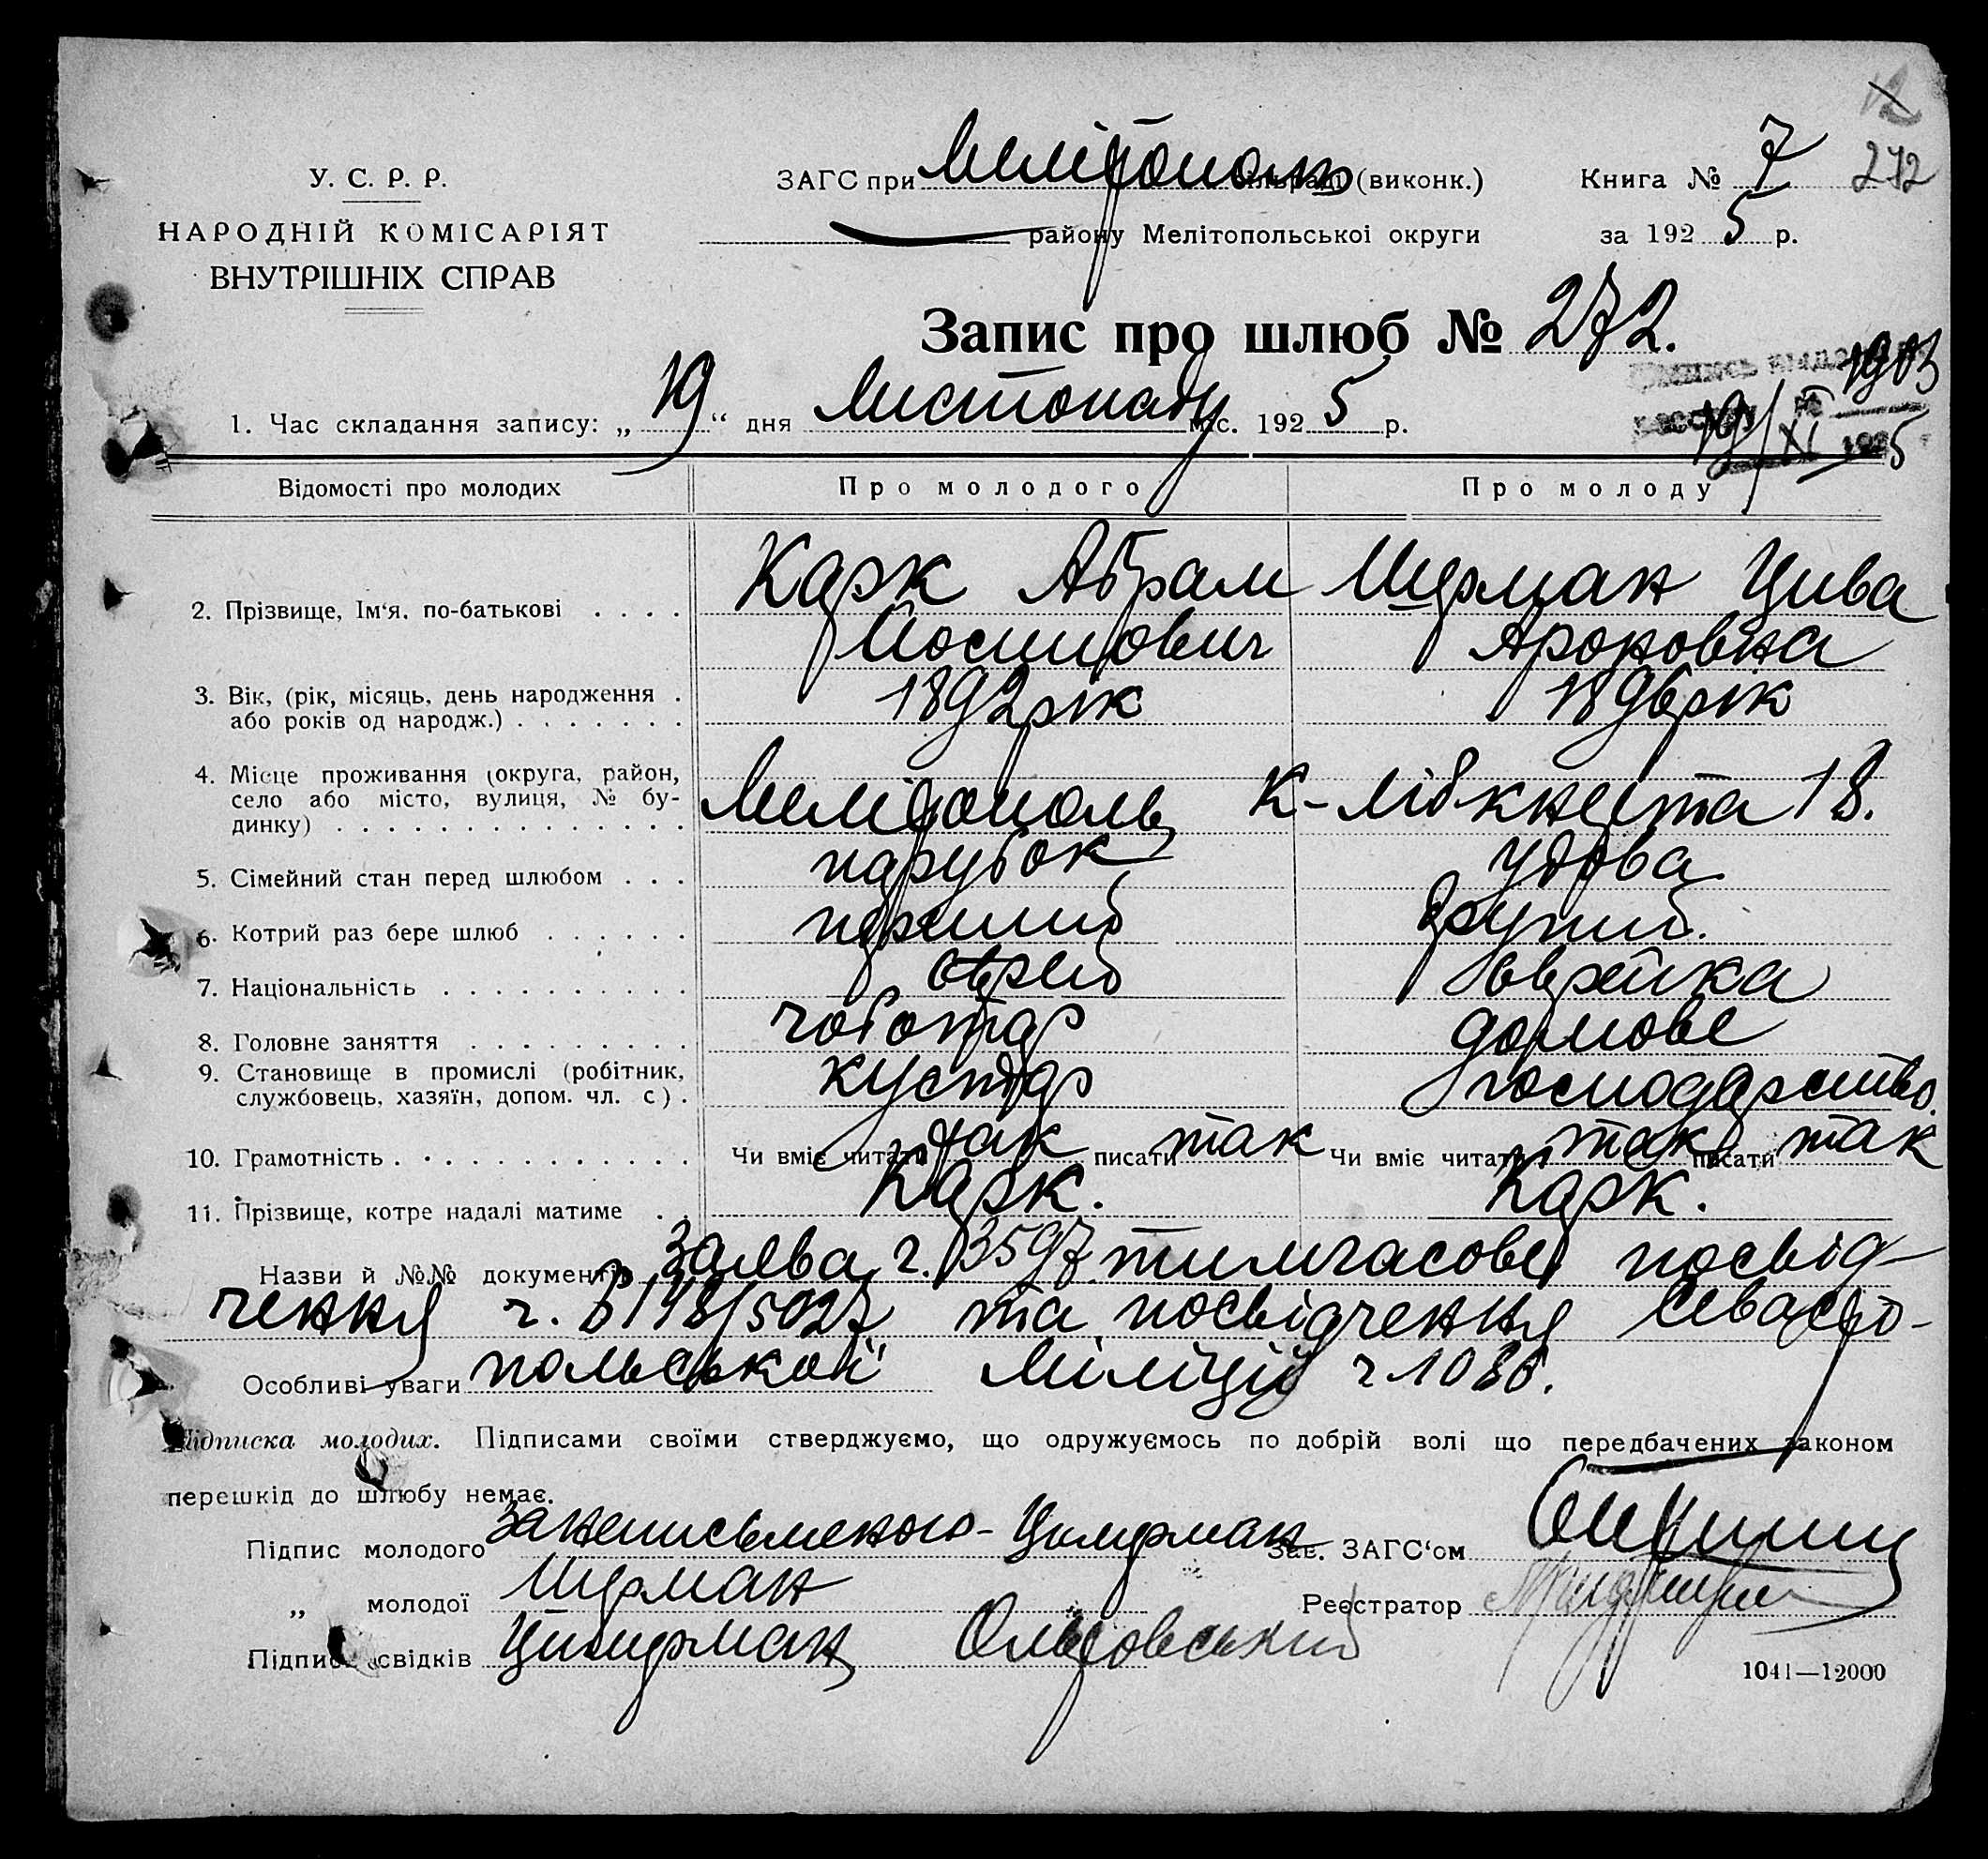 272
У. С. Р. Р.
НАРОДНІЙ КОМІСАРІЯТ
ВНУТРІШНІХ СПРАВ
ЗАГС при Мелітополь (виконк.)
Книга № 7
району Мелітопольської округи
за 1925 р.
Запис про шлюб № 272.
1903
19/XI 1925
1. Час складання запису: „19“ дня Листопаду міс. 1925 р.
Відомості про молодих Про молодого Про молоду
2. Прізвище, Ім‘я, по-батькові . . . . Карк Абрам Шурман Цива
Йосипович Ароновна
3. Вік, (рік, місяць, день народження . 1892 рік 1896 рік
або років од народж.) . . . . . . .
4. Місце проживання (округа, район,
село або місто, вулиця, № бу-
динку) . . . . . . . . . . . . . . Мелітополь К-Лібкнехта 18.
5. Сімейний стан перед шлюбом . . . парубок удова
6. Котрий раз бере шлюб . . . . . . перший другий.
7. Національність . . . . . . . . . . єврей єврейка
8. Головне заняття . . . . . . . . . чоботар домове
9. Становище в промислі (робітник, кустар господарство.
службовець, хазяїн, допом. чл. с) .
10. Грамотність . . . . . . . . . . . Чи вміє читати так писати так Чи вміє читати так писати так
11. Прізвище, котре надалі матиме . . Карк. Карк.
Назви й №№ документів заява ч. 3597 тимчасове посвід-
чення ч. 5148/5027 та посвідчення Севасто-
Особливі уваги польської Міліції ч 1086.
Підписка молодих. Підписами своїми стверджуємо, що одружуємось по добрій волі що передбачених законом
перешкід до шлюбу немає.
Підпис молодого за неписьменого - Цимерман
Зав. ЗАГС‘ом
„ молодої Шурман
Реєстратор
Підпис свідків Цимерман Ольховський
1041—12000